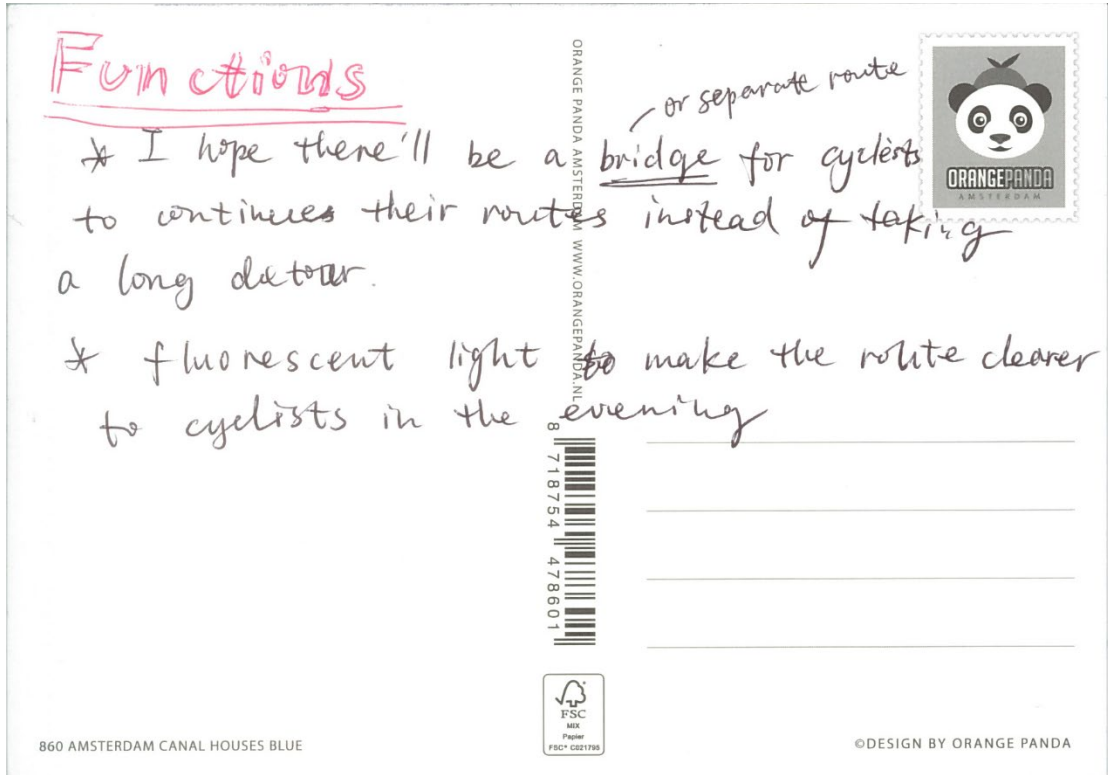 Functions
or separate route
* I hope there'll be a bridge for cyclists
to continues their routes instead of taking
a long detour.
* fluorescent light to make the route clearer
to cyclists in the evening
ORANGE PANDA AMSTERDAM WWW.ORANGEPANDA.NL
ORANGEPANDA
AMSTERDAM
8 718754 478601
FSC
MIX
Papier
FSC® C021795
860 AMSTERDAM CANAL HOUSES BLUE
©DESIGN BY ORANGE PANDA